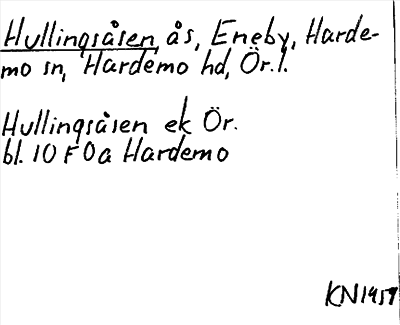 Hullingsåsen, ås, Eneby, Harde-
mo sn, Hardemo hd, Ör. l.
Hullingsåsen ek Ör.
bl. 10 F 0a Hardemo
KN1957